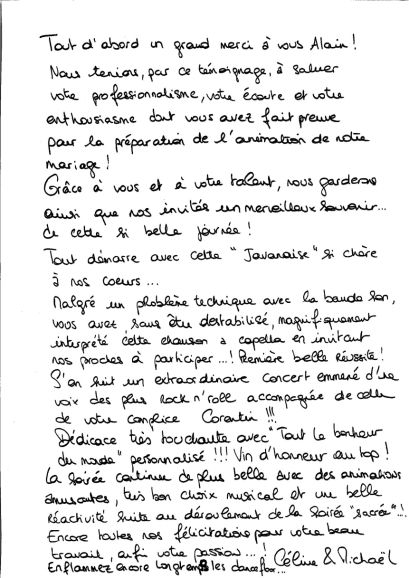 Tout d'abord un grand merci à vous Alain !
Nous tenions, par ce témoignage, à saluer
votre professionnalisme, votre écoute et votre
enthousiasme dont vous avez fait preuve
pour la préparation de l'animation de notre
mariage !
Grâce à vous et à votre talent, nous garderons
ainsi que nos invités un merveilleux souvenir...
de cette si belle journée !
Tout démarre avec cette "Javanaise" si chère
à nos coeurs ...
Malgré un problème technique avec la bande son,
vous avez, sans être destabilisé, magnifiquement
interprété cette chanson a capella en invitant
nos proches à participer ...! Première belle réussite !
S'en suit un extraordinaire concert emmené d'une
voix des plus rock n'roll accompagnée de celle
de votre complice Corentin !!!
Dédicace très touchante avec "Tout le bonheur
du monde" personnalisé !!! Vin d'honneur au top !
La soirée continue de plus belle avec des animations
amusantes, très bon choix musical et une belle
réactivité suite au déroulement de la soirée "sacrée"..!
Encore toutes nos félicitations pour votre beau
travail, enfin votre passion ... !
Enflammez encore longtemps les dancefloor... Céline & Michaël